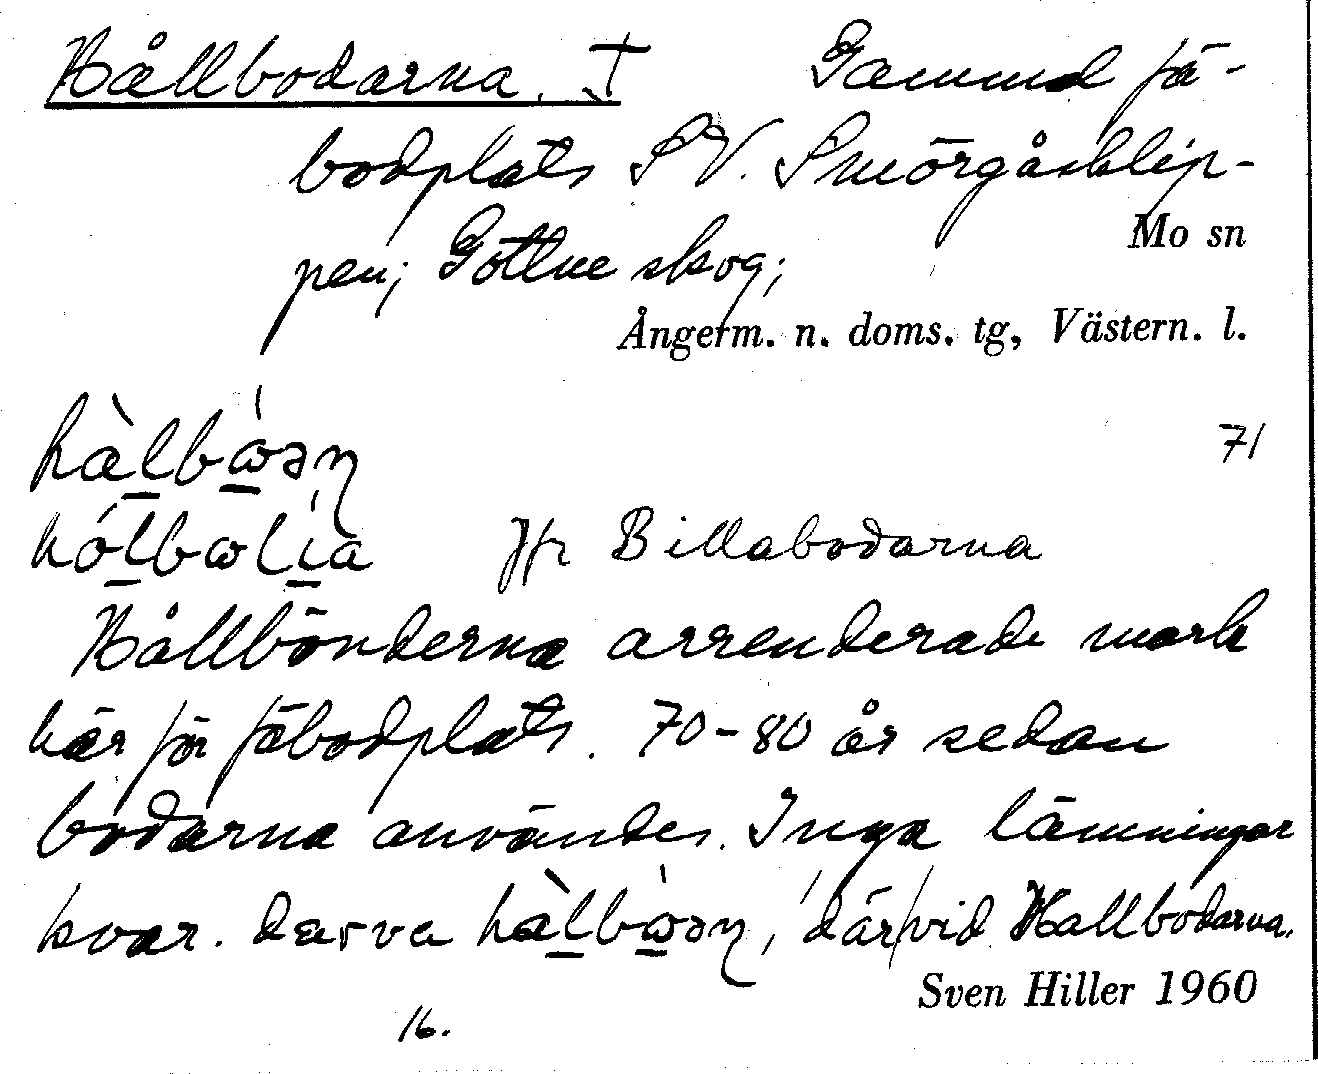 Hållbodarna. † Gammal fä-
bodplats SV. Smörgåsklip-
pen; Gottne skog;
Mo sn
Ångerm. n. doms. tg, Västern. l.
71
Jfr Billabodarna
Hållbönderna arrenderade mark
här för fäbodplats. 70-80 år sedan
bodarna användes. Inga lämningar
kvar. , där vid Hallbodarna.
Sven Hiller 1960
16.